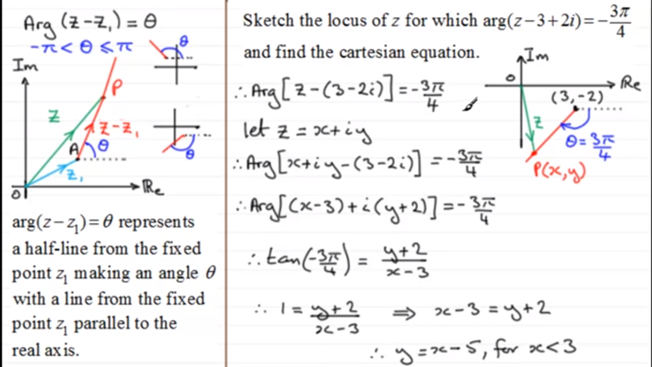 Arg(z-z₁)=θ
-π<θ≤π
θ
Im
P
z
z-z₁
A
θ
z₁
O
Re
θ
arg(z−z₁)=θ represents
a half-line from the fixed
point z₁ making an angle θ
with a line from the fixed
point z₁ parallel to the
real axis.
Sketch the locus of z for which arg(z−3+2i)=−3π/4
and find the cartesian equation.
∴Arg[z-(3-2i)]=-3π/4
let z=x+iy
∴Arg[x+iy-(3-2i)]=-3π/4
∴Arg[(x-3)+i(y+2)]=-3π/4
∴tan(-3π/4)=(y+2)/(x-3)
∴ 1=(y+2)/(x-3) ⇒ x-3=y+2
∴ y=x-5, for x<3
Im
O
Re
(3,-2)
z
θ=3π/4
P(x,y)